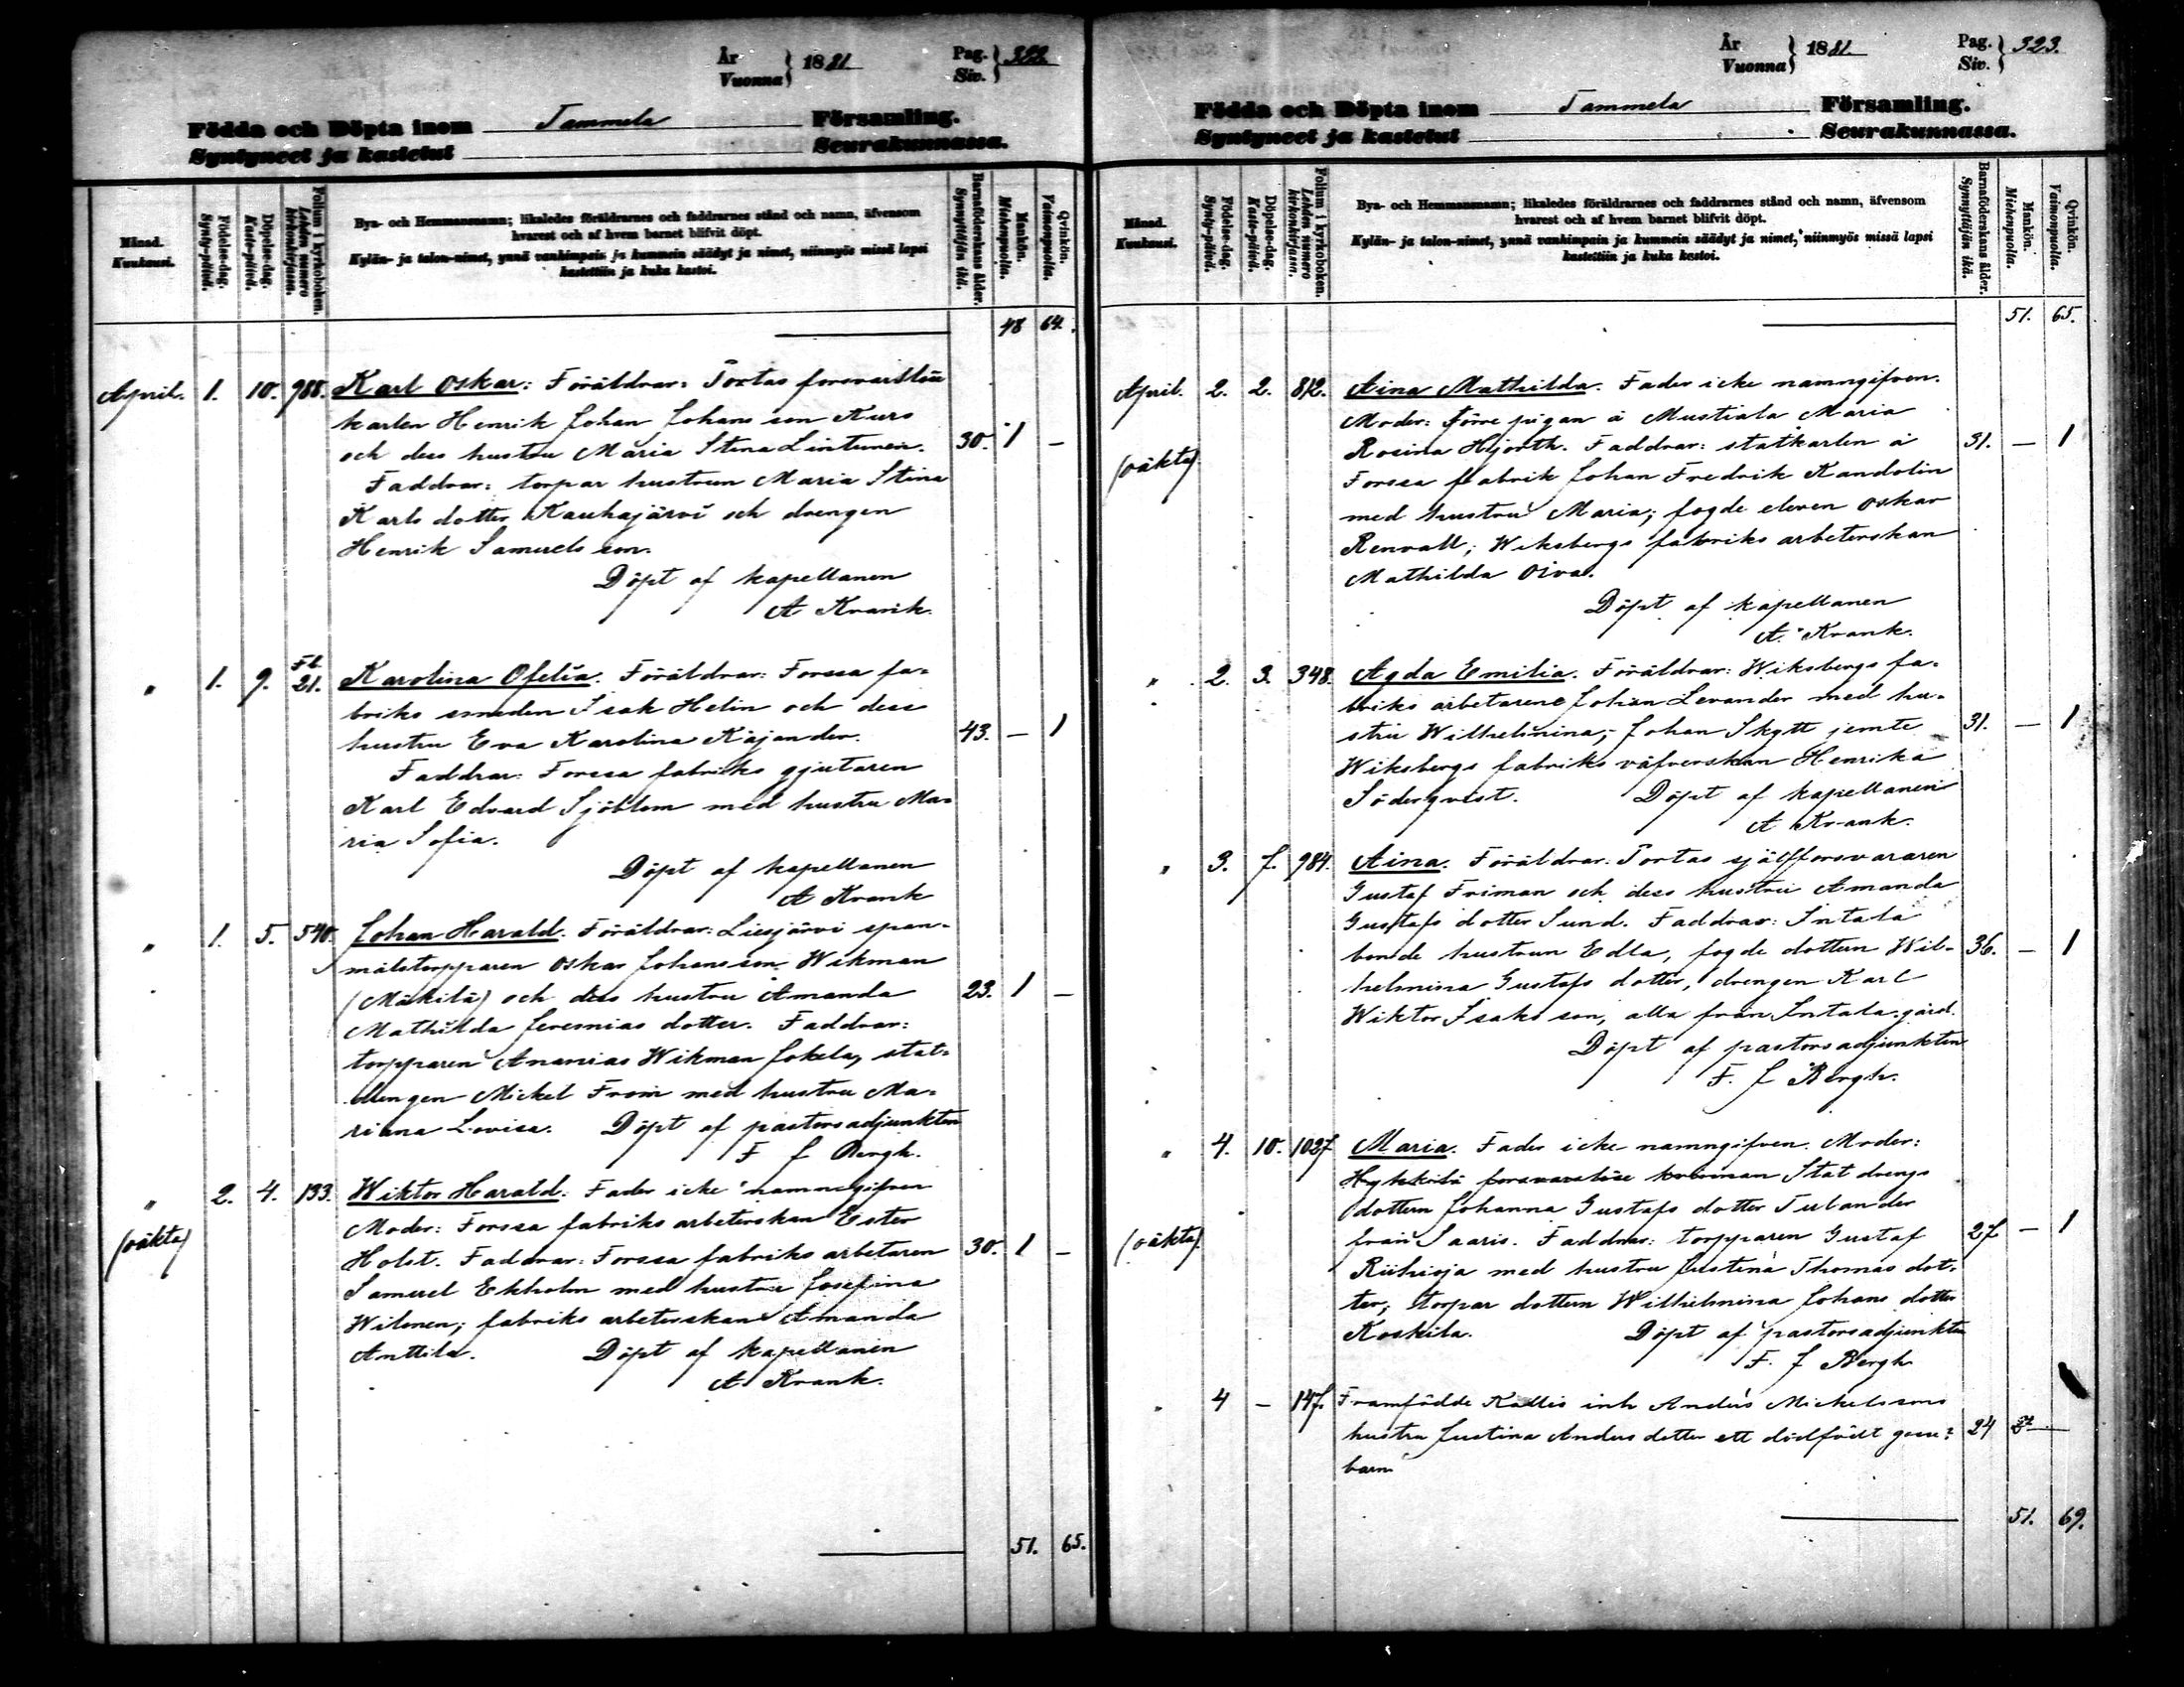 År
Vuonna } 1881
Pag.
Siv. } 322
Födda och Döpta inom Tammela Församling.
Syntyneet ja kastetut Seurakunnassa.
Månad.
Kuukausi.
Födelse-dag.
Synty-päivä.
Döpelse-dag.
Kaste-päivä.
Folium i kyrkoboken.
Lehden numero kirkonkirjassa.
Bya- och Hemmansnamn; likaledes föräldrarnes och faddrarnes stånd och namn, äfvensom
hvarest och af hvem barnet blifvit döpt.
Kylän- ja talon-nimet, ynnä vanhimpain ja kummein säädyt ja nimet, niinmyös missä lapsi
kastettiin ja kuka kastoi.
Barnaföderskans ålder.
Synnyttäjän ikä.
Mankön.
Miehenpuolta.
Qvinkön.
Vaimonpuolta.
48 64.
April. 1. 10. 988. Karl Oskar: Föräldrar: Tortas forsvarslöse
karlen Henrik Johan Johans son Kurs
och dess hustru Maria Stina Lintunen. 30. 1 —
Faddrar: torpar hustrun Maria Stina
Karls dotter Kauhajärvi och drengen
Henrik Samuels son.
Döpt af kapellanen
A Krank.
" 1. 9. Fb. 21. Karolina Ofelia. Föräldrar: Forssa fa-
briks smeden Isak Helin och dess
hustru Eva Karolina Kajander. 43. — 1
Faddrar: Forssa fabriks gjutaren
Karl Edvard Sjöblom med hustru Ma-
ria Sofia.
Döpt af kapellanen
A Krank
" 1. 5. 540. Johan Harald. Föräldrar: Liesjärvi span-
målstorpparen Oskar Johansson Wikman
(Mäkilä) och dess hustru Amanda 23. 1 —
Mathilda Jeremias dotter. Faddrar:
torpparen Ananias Wikman Jokela, stat-
drengen Mickel From med hustru Ma-
riana Lovisa. Döpt af pastorsadjunkten
F J Bergh.
" 2. 4. 133. Wiktor Harald. Fader icke namngifven
(oäkta) Moder: Forssa fabriks arbeterskan Ester
Holst. Faddrar: Forssa fabriks arbetaren 30. 1 —
Samuel Ekholm med hustru Josefina
Wilenen; fabriks arbeterskan Amanda
Anttila. Döpt af kapellanen
A Krank.
51. 65.
År
Vuonna } 1881
Pag.
Siv. } 323.
Födda och Döpta inom Tammela Församling.
Syntyneet ja kastetut Seurakunnassa.
Månad.
Kuukausi.
Födelse-dag.
Synty-päivä.
Döpelse-dag.
Kaste-päivä.
Folium i kyrkoboken.
Lehden numero kirkonkirjassa.
Bya- och Hemmansnamn; likaledes föräldrarnes och faddrarnes stånd och namn, äfvensom
hvarest och af hvem barnet blifvit döpt.
Kylän- ja talon-nimet, ynnä vanhimpain ja kummein säädyt ja nimet, niinmyös missä lapsi
kastettiin ja kuka kastoi.
Barnaföderskans ålder.
Synnyttäjän ikä.
Mankön.
Miehenpuolta.
Qvinkön.
Vaimonpuolta.
51. 65.
April. 2. 2. 812. Aina Mathilda. Fader icke namngifven.
Moder: förre pigan å Mustiala Maria
(oäkta) Rosina Hjorth. Faddrar: statkarlen å 31. — 1
Forssa fabrik Johan Fredrik Kandolin
med hustru Maria; fogde eleven Oskar
Renvall; Wiksbergs fabriks arbeterskan
Mathilda Oiva.
Döpt af kapellanen
A. Krank.
" 2. 3. 348. Agda Emilia. Föräldrar: Wiksbergs fa-
briks arbetarene Johan Levander med hu-
stru Wilhelmina; Johan Skytt jemte 31. — 1
Wiksbergs fabriks väfverskan Henrika
Söderqvist. Döpt af kapellanen
A Krank.
" 3. 7. 984. Aina. Föräldrar: Tortas sjelfforsvararen
Gustaf Friman och dess hustru Amanda
Gustafs dotter Sund. Faddrar: Intala
bonde hustrun Edla, fogde dottern Wil- 36. — 1
helmina Gustafs dotter, drengen Karl
Wiktor Isaks son, alla från Intala gård.
Döpt af pastorsadjunkten
F. J Bergh.
" 4. 10. 1027 Maria. Fader icke namngifven. Moder:
Hykkilä forsvarslöse kvinnan Stat drengs
dottern Johanna Gustafs dotter Tulander
(oäkta). från Saaris. Faddrar: torpparen Gustaf 27 — 1
Riihioja med hustru Justina Thomas dot-
ter; torpar dottern Wilhelmina Johans dotter
Koskila. Döpt af pastorsadjunkten
F. J Bergh
" 4 — 147. Framfödde Kallis inh Anders Mickelssons
hustru Justina Anders dotter ett dödfödt 24
barn
51. 69.